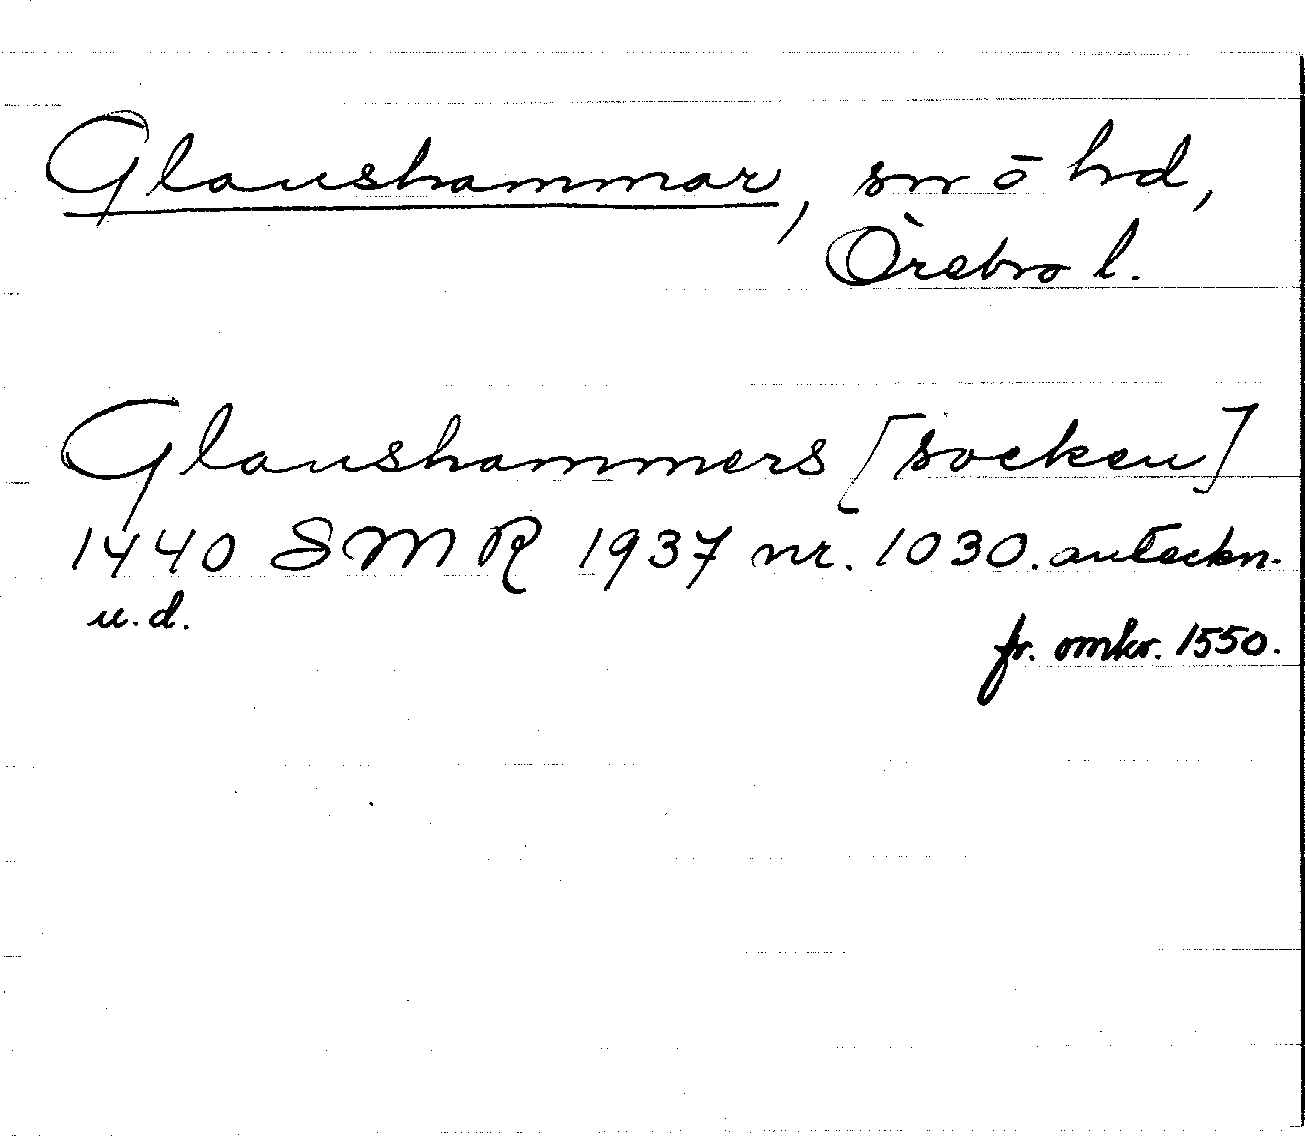 Glanshammar, sn o hd,
Örebro l.
Glanshammers [socken]
1440 SMR 1937 nr. 1030. anteckn.
u.d.
fr. omkr. 1550.